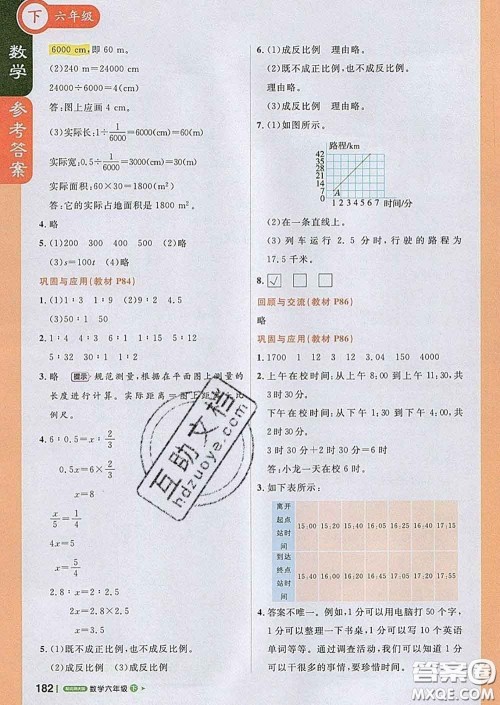 下 六年级
数学
参考答案
6000 cm,即 60 m。
(2)240 m=24000 cm
24000÷6000=4(cm)
答:图上应画 4 cm。
(3)实际长:1÷1/6000=6000(cm)=60(m)
实际宽:0.5÷1/6000=3000(cm)=30(m)
实际面积:60×30=1800(m²)
答:它的实际占地面积是 1800 m²。
4. 略
5. (1)200 300 400 500 (2)略
(3)s=100t (4)略
巩固与应用(教材 P84)
1. (1)1∶3 1∶9 (2)9 2 4.5
(3)50∶1 50
2. 4∶1 1∶4 32∶37 37∶32 1∶10
5∶32 30∶1 1∶2
3. 略 提示 规范测量,根据在平面图上测量的
长度进行计算。实际距离=图上距离÷比
例尺。
4. 6∶0.5=x∶2/3
0.5x=6×2/3
x=8
x/5=1/4
4x=5
x=5/4
2.8∶x=2∶2.5
2x=2.8×2.5
x=3.5
5. (1)成反比例 (2)既不成正比例,也不成反比例
(3)成正比例
6. (1)成反比例 理由略。
(2)既不成正比例,也不成反比例
理由略。
(3)成反比例 理由略。
7. (1)如图所示。
路程/km
42
35
28
21
14
7
0
A
1 2 3 4 5 6 7 8 时间/分
(2)在一条直线上。
(3)列车运行 2.5 分时,行驶的路程为
17.5 千米。
8. ☑ □ □
回顾与交流(教材 P86)
略
巩固与应用(教材 P86)
1. 1700 1 12 3 12 3.04 150 4000
2. 上午在校时间:从上午 8:00 到上午 11:30,共
3 时 30 分。
下午在校时间:从下午 2:00 到下午 4:30,共
2 时 30 分。
3 时 30 分+2 时 30 分=6 时
答:小龙一天在校 6 时。
3. 如下表所示:
离开起点站时间 15:00 15:20 15:40 16:00 16:20 16:40
到达终点站时间 15:35 15:55 16:15 16:35 16:55 17:15
4. 答案不唯一。例如,1 分可以用电脑打 50 个字,
1 分可以整理一下书桌,1 分可以写 10 个英语
单词等等。通过调查活动,我们发现 1 分可以
做很多有意义的事情,要珍惜时间。
182 数学六年级 下
互助文档
hdzuoye.com
答案圈
MXQE.COM